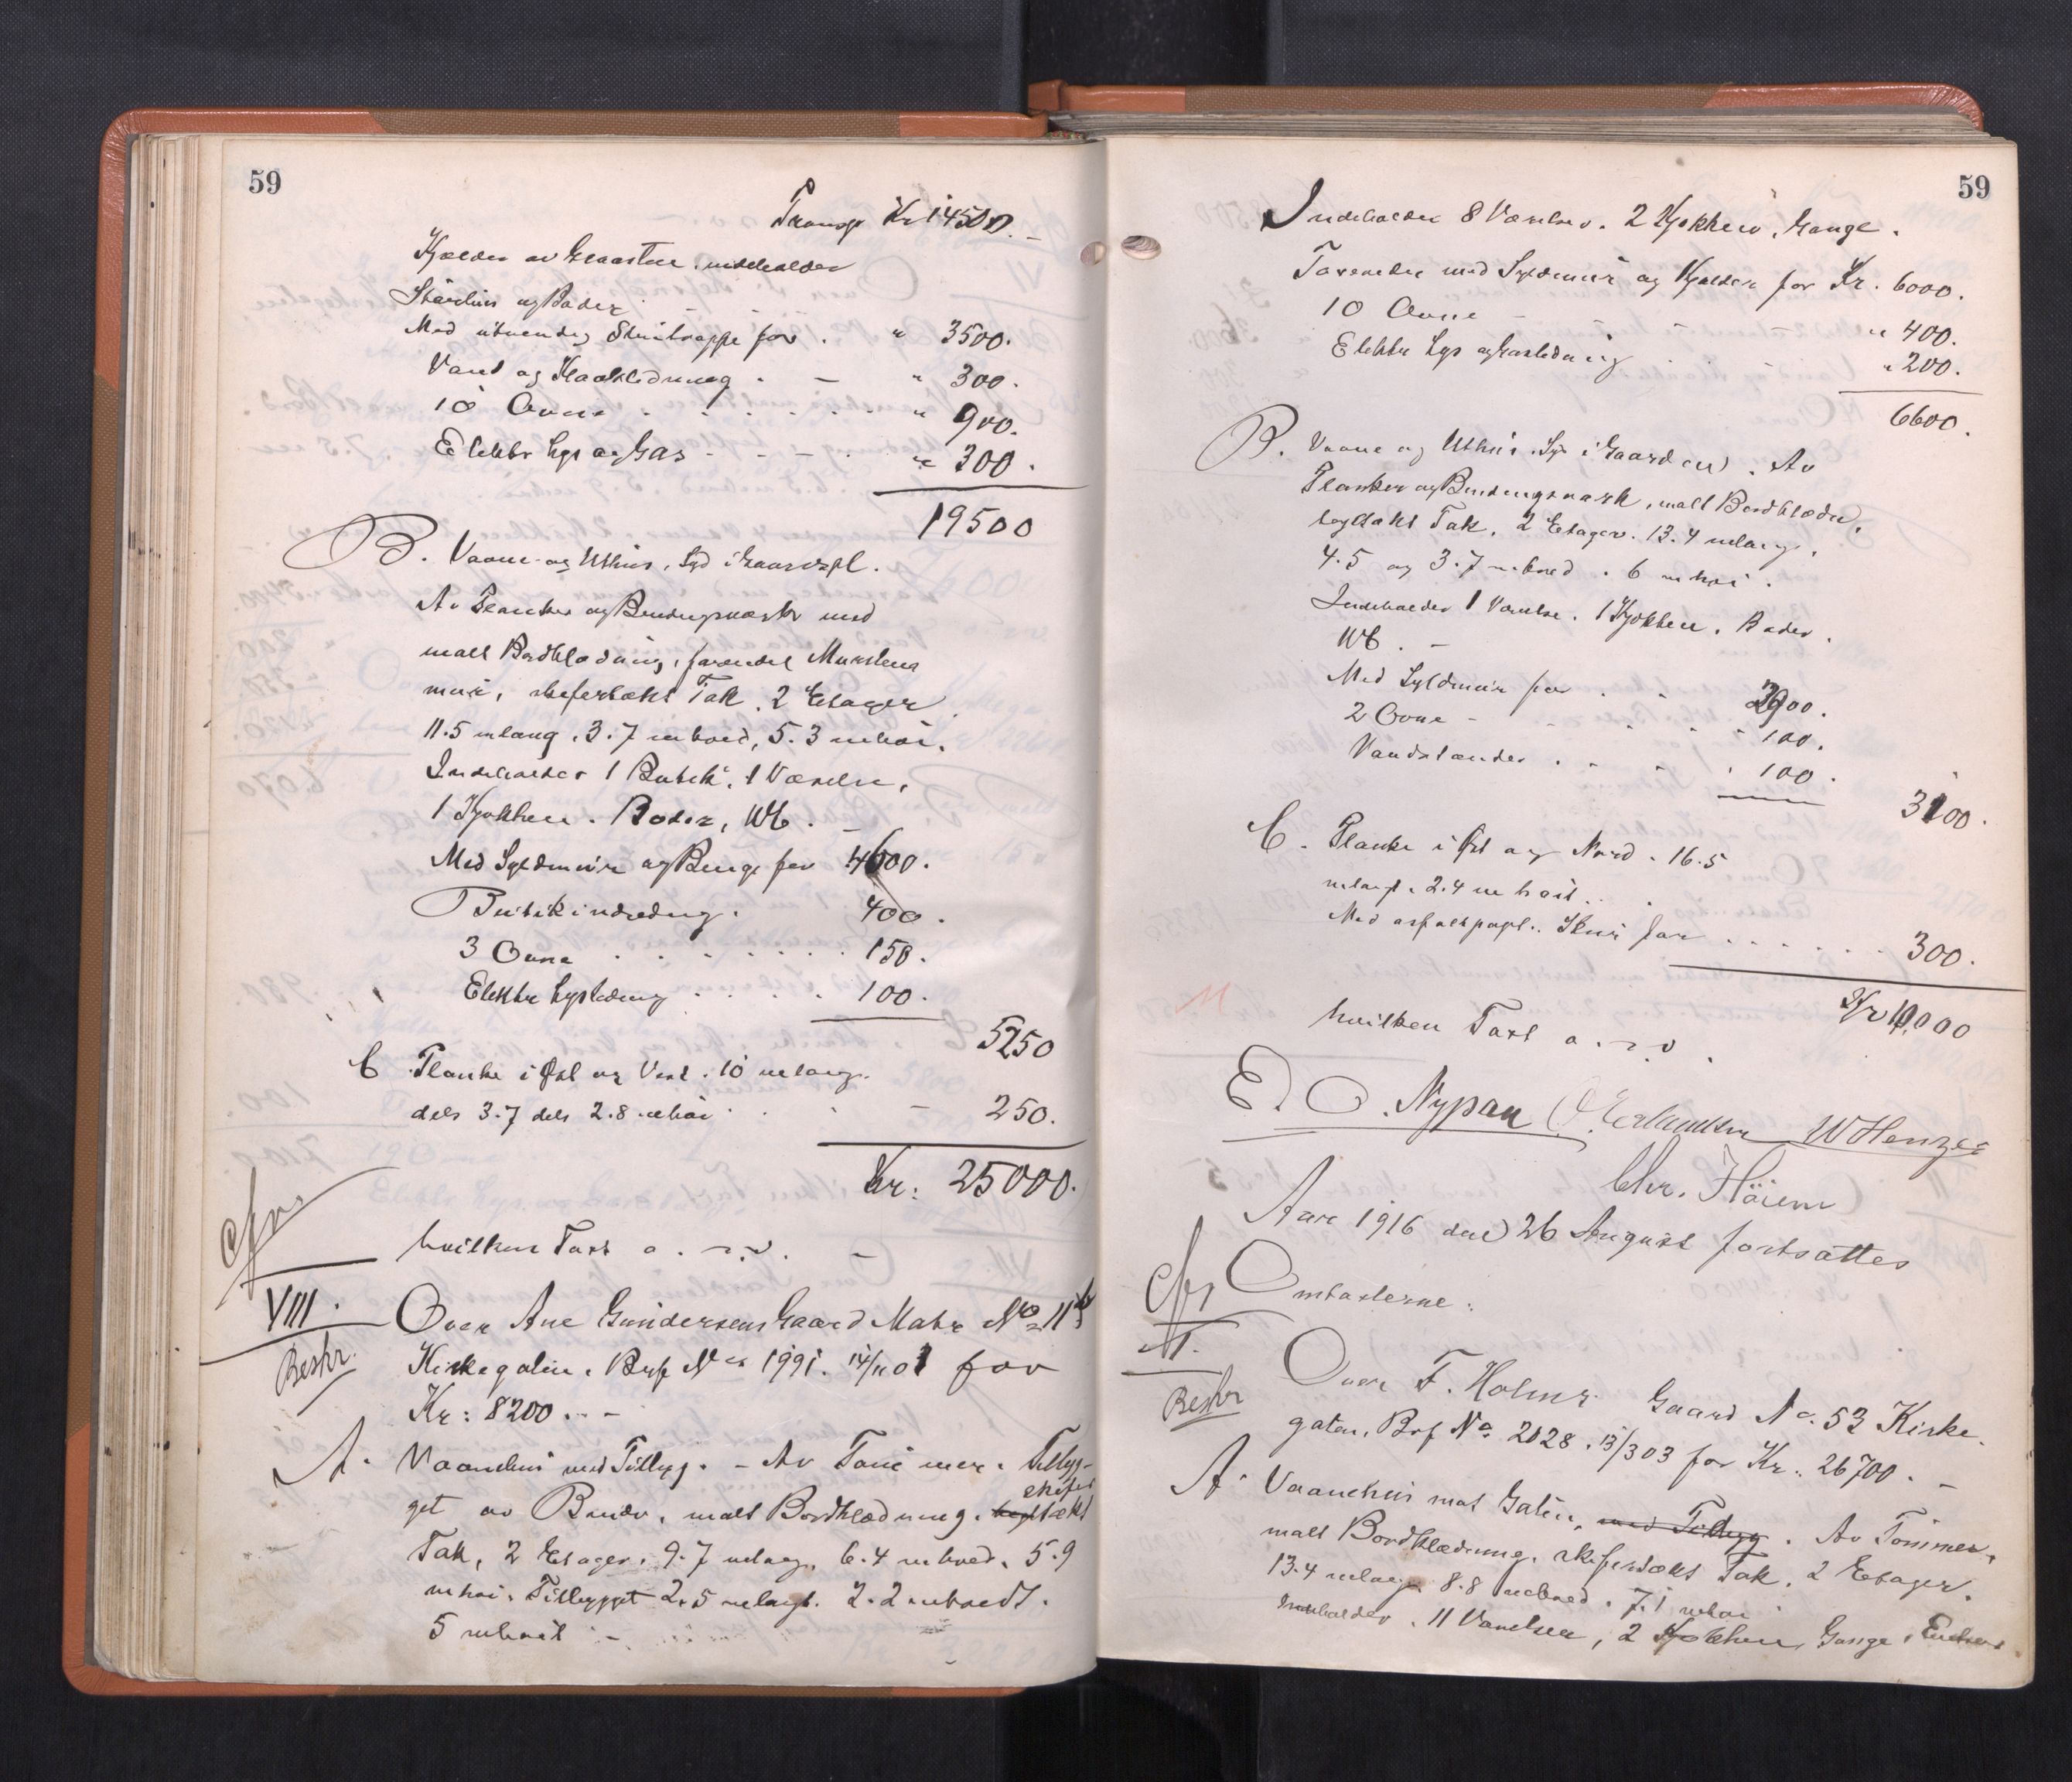 59
Transp Kr 14500. –
Kjælder av Graasten, indeholder
og Boder
Med utvendig Stentrappe for . " 3500.
Vand og Kloakledning . – " 300.
10 Ovne . . . . . . " 900.
Elektr Lys og Gas - - – . " 300.
19500
B. Vaane og Uthus, Syd i Gaardspl.
Av Planker og Bindingsværk med
malt Bordklædning, forøvrigt Murstens
mur, skifertækt Tak. 2 Etager
11.5 m lang, 3.7 m bred, 5.3 m høi.
Indeholder 1 Butik, 1 Værelse,
1 Kjøkken. Boder, WC. –
Med Syldmur og for 4600.
Butikindredng. 400.
3 Ovne . . . . . . . 150.
Elektr Lysledning . . . . 100.
5250
C Planke i Øst og Vest. 10 m lang.
dels 3.7 dels 2.8 m høi . . – 250.
Kr: 25000.
cfr
hvilken Taxt o. s. v. –
VIII. Over Ane Gundersens Gaard Matr No 11b
Beskr. Kirkegaten. Brf No 1991. 14/11 01 for
Kr: 8200. . –
A. Vaanehus med Tilbyg. – Av Tømmer. Tilbyg-
skifer
get av Bindv, malt Bordklædning. tegltækt
Tak, 2 Etager. 9.7 m lang, 6.4 m bred, 5.9
m høi. Tilbygget 2.5 m langt. 2.2 m bredt.
5 m høit –
59
Indeholder 8 Værelser. 2 Kjøkken, Gange.
Taxeredes med Syldmur og Kjælder for Kr. 6000.
10 Ovne – - - – " 400.
Elektr Lys og Gasledning . . " 200.
6600.
B. Vaane og Uthus Syd i Gaarden. Av
Planker og Bindingsværk, malt Bordklædn,
tegltækt Tak. 2 Etager. 13.4 m lang,
4.5 og 3.7 m bred . 6 m høi.
Indeholder 1 Værelse. 1 Kjøkken. Boder.
WC. –
Med Syldmur for . - 2900.
2 Ovne - . . - 100.
Vandstænder . - - . 100.
3100.
C. Planke i Øst og Nord. 16.5
m langt. 2.4 m høit . .
Med asfaltpapt. Skur for . . . . . . 300.
Kr 10,000
hvilken Taxt o. s. v.
E. O. Nypan O Erlandsen W Henzes
Chr. Höiem
Aar 1916 den 26 August fortsattes
cfr Omtaxterne:
I.
Beskr Over F. Holms Gaard No. 53 Kirke-
gaten, Brf No 2028. 13/3 03 for Kr. 26700. –
A. Vaanehus mot Gaten, med Tilbyg. Av Tømmer,
malt Bordklædning, skifertækt Tak. 2 Etager.
13.4 m lang 8.8 m bred. 7.1 m høi
Indeholder. 11 Værelser, 2 Kjøkken, Gange,